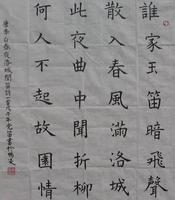 誰家玉笛暗飛聲
散入春風滿洛城
此夜曲中聞折柳
何人不起故園情
唐李白春夜洛城聞笛詩